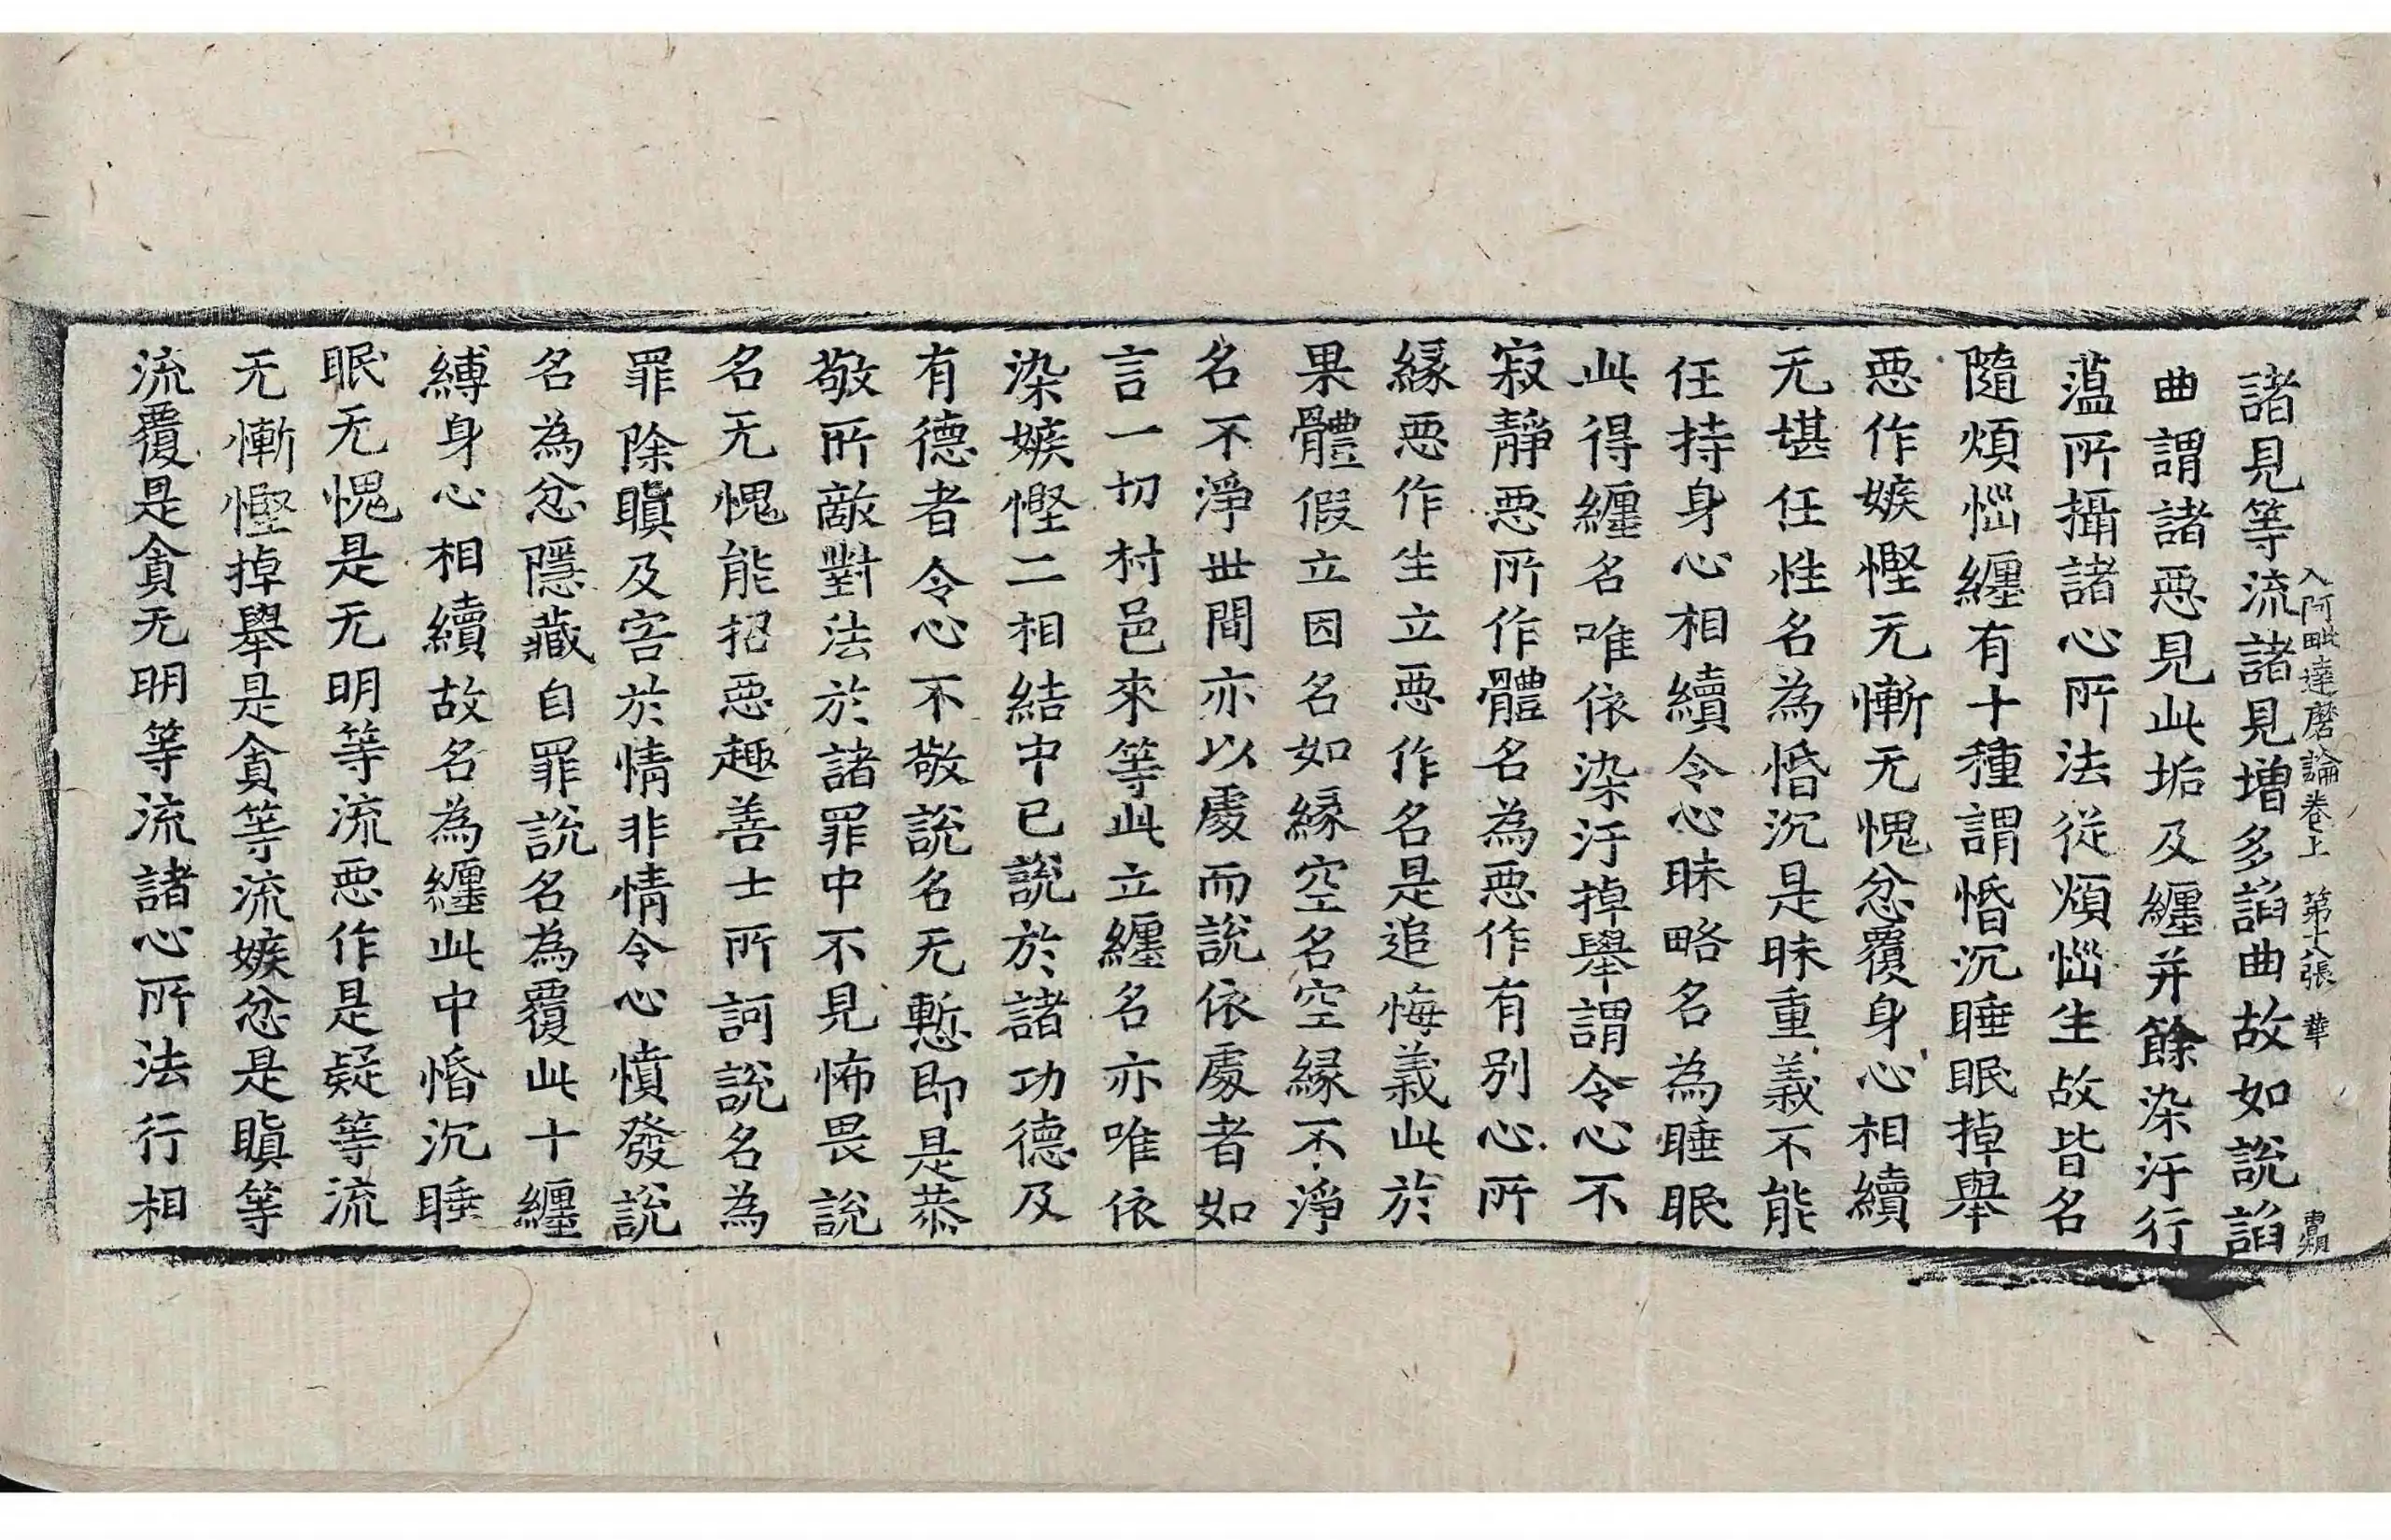 入阿毗達磨論卷上　第十八張　華
諸見等流諸見增多諂曲故如說諂
曲謂諸惡見此垢及纏并餘染汙行
薀所攝諸心所法從煩惱生故皆名
隨煩惱纏有十種謂惛沉睡眠掉舉
惡作嫉慳无慚无愧忿覆身心相續
无堪任性名為惛沉是昧重義不能
任持身心相續令心昧略名為睡眠
此得纏名唯依染汙掉舉謂令心不
寂靜惡所作體名為惡作有別心所
緣惡作生立惡作名是追悔義此於
果體假立因名如緣空名空緣不淨
名不淨世間亦以處而說依處者如
言一切村邑來等此立纏名亦唯依
染嫉慳二相結中已說於諸功德及
有德者令心不敬說名无慙即是恭
敬所敵對法於諸罪中不見怖畏說
名无愧能招惡趣善士所訶說名為
罪除瞋及害於情非情令心憤發說
名為忿隱藏自罪說名為覆此十纏
縛身心相續故名為纏此中惛沉睡
眠无愧是无明等流惡作是疑等流
无慚慳掉舉是貪等流嫉忿是瞋等
流覆是貪无明等流諸心所法行相